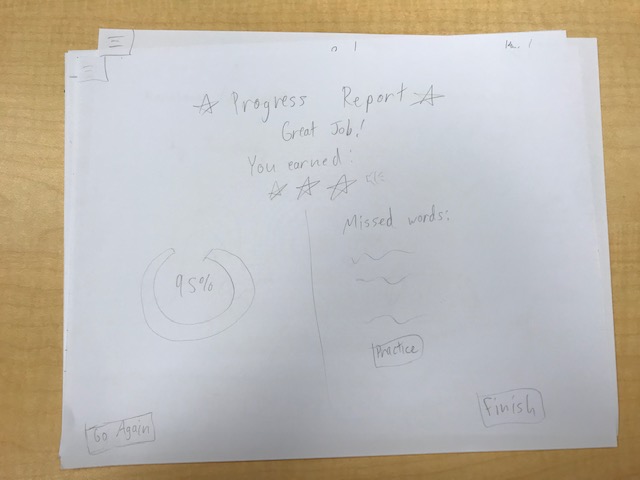 Progress Report
Great Job!
You earned:
Missed words:
95%
Practice
Go Again
Finish